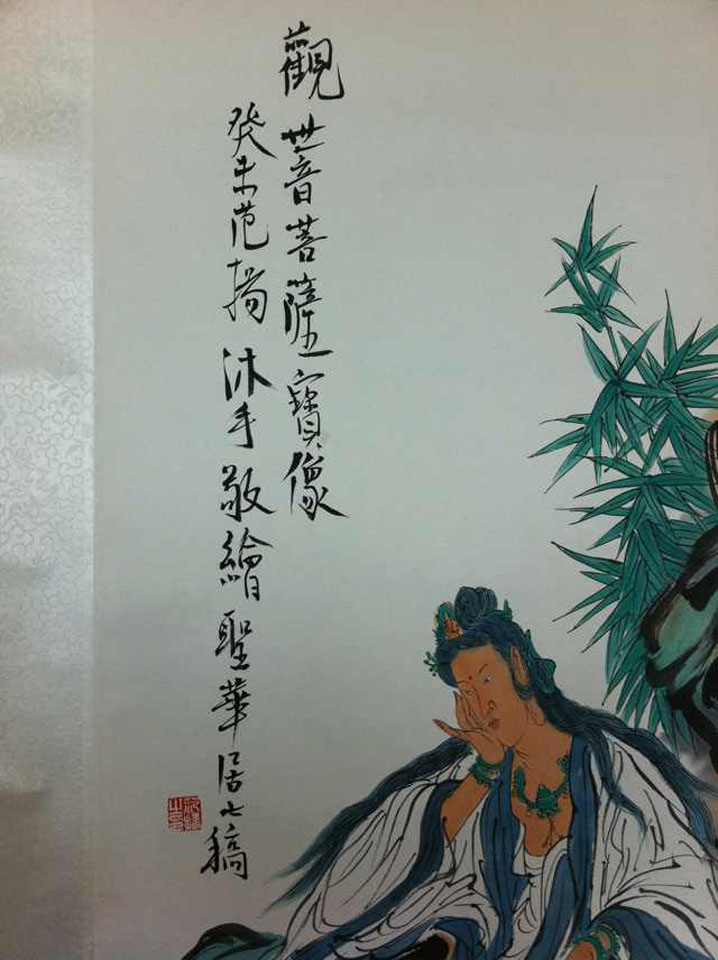 觀世音菩薩寶像
癸未范揚沐手敬繪聖華居七稿